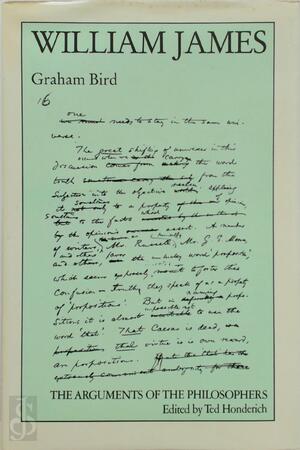 WILLIAM JAMES
Graham Bird
16
one
need, to stay in the same uni-
verse.
The great shifting of universes in this
discussion comes from the word
truth from the
subjective into the objective realm, applying
to a property of
to the facts which
by the opinions assert. A number
of writers, Mr. Russell, Mr. G. E. Moore,
and others, the unlucky word 'proposition,'
which seems expressly to foster this
confusion for they speak of as a property
of 'propositions.' But in naming propo-
sitions it is almost impossible not to use the
word 'that.' That Caesar is dead,
that virtue is its own reward,
are propositions.
THE ARGUMENTS OF THE PHILOSOPHERS
Edited by Ted Honderich